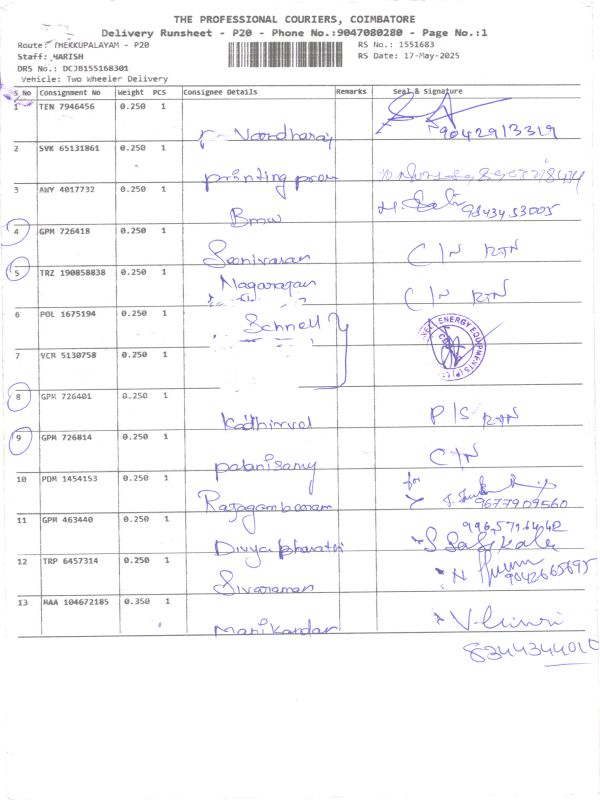 THE PROFESSIONAL COURIERS, COIMBATORE
Delivery Runsheet - P20 - Phone No.:9047080280 - Page No.:1
Route: THEKKUPALAYAM - P20
RS No.: 1551683
Staff: HARISH
RS Date: 17-May-2025
DRS No.: DCJB155168301
Vehicle: Two Wheeler Delivery
S No Consignment No Weight PCS Consignee Details Remarks Seal & Signature
1 TEN 7946456 0.250 1
Varadharaj 9042913319
2 SVK 65131861 0.250 1
printing
3 AWY 4017732 0.250 1
Bmw
4 GPM 726418 0.250 1
Srinivasan C/N RTN
5 TRZ 190858838 0.250 1
Nagarajan C/N RTN
6 POL 1675194 0.250 1
Schnell ENERGY EQUIPMENTS
7 VCR 5130758 0.250 1
8 GPM 726401 0.250 1
Kadhirvel P/S RTN
9 GPM 726814 0.250 1
palanisamy C/N
10 PDM 1454153 0.250 1
for
9677909560
11 GPM 463440 0.250 1
Divya bharathi S Sasikala
12 TRP 6457314 0.250 1
Sivaraman 9042665695
13 MAA 104672185 0.350 1
Manikandan
8344344010